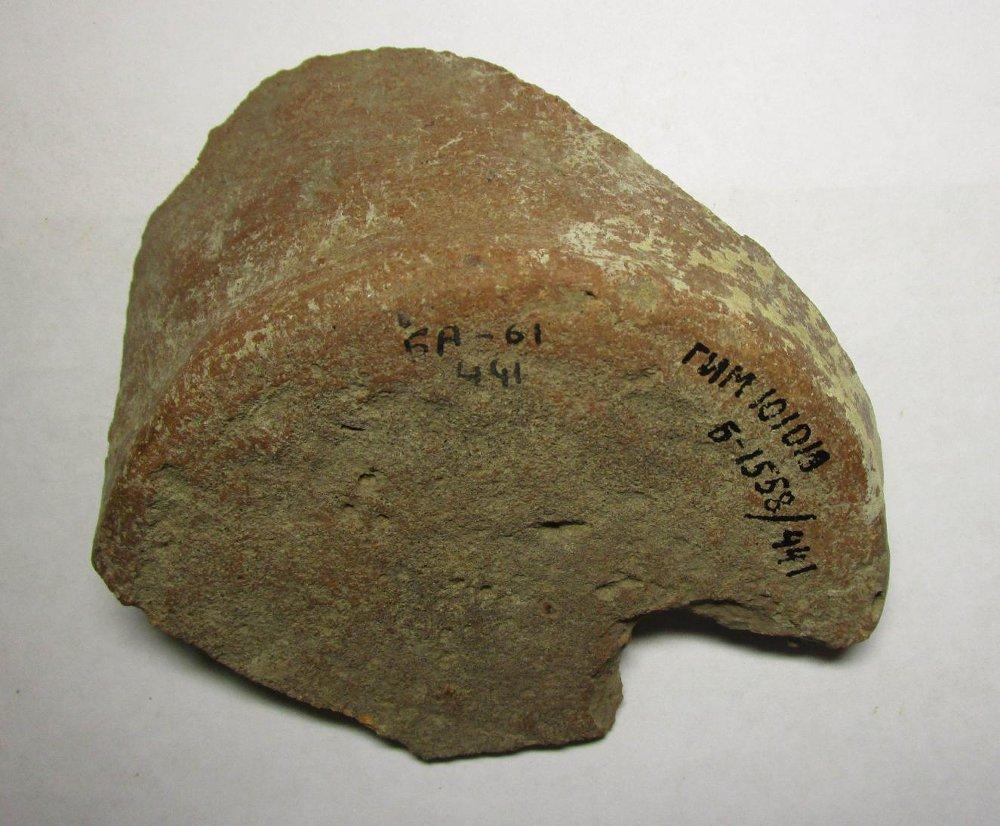 БА-61
441
ГИМ 101019
Б-1558/441